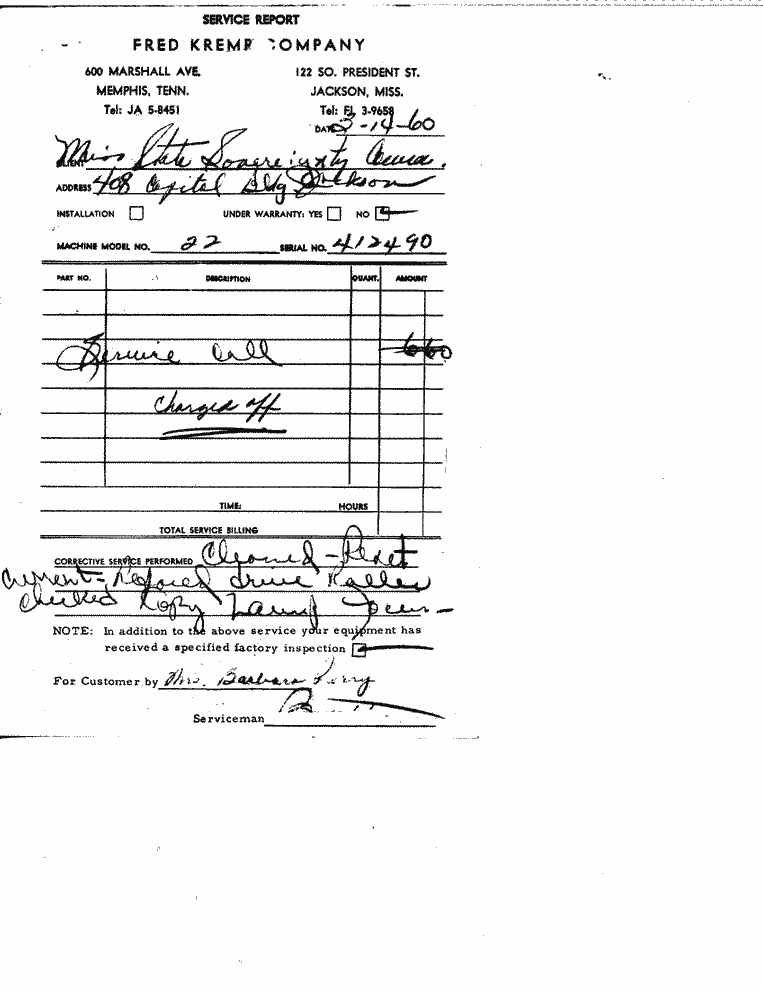 SERVICE REPORT
FRED KREMP COMPANY
600 MARSHALL AVE. 122 SO. PRESIDENT ST.
MEMPHIS, TENN. JACKSON, MISS.
Tel: JA 5-8451 Tel: FL 3-9658
DATE 3-14-60
CLIENT Miss State Sovereignty
ADDRESS 408 Capitol Bldg Jackson
INSTALLATION UNDER WARRANTY: YES NO
MACHINE MODEL NO. 22 SERIAL NO. 412490
PART NO. DESCRIPTION QUANT. AMOUNT
Service Call 6 60
Charged off
TIME: HOURS
TOTAL SERVICE BILLING
CORRECTIVE SERVICE PERFORMED Cleaned - Reset
drive Roller
checked Copy Lamp
NOTE: In addition to the above service your equipment has
received a specified factory inspection
For Customer by Mrs. Barbara Perry
Serviceman